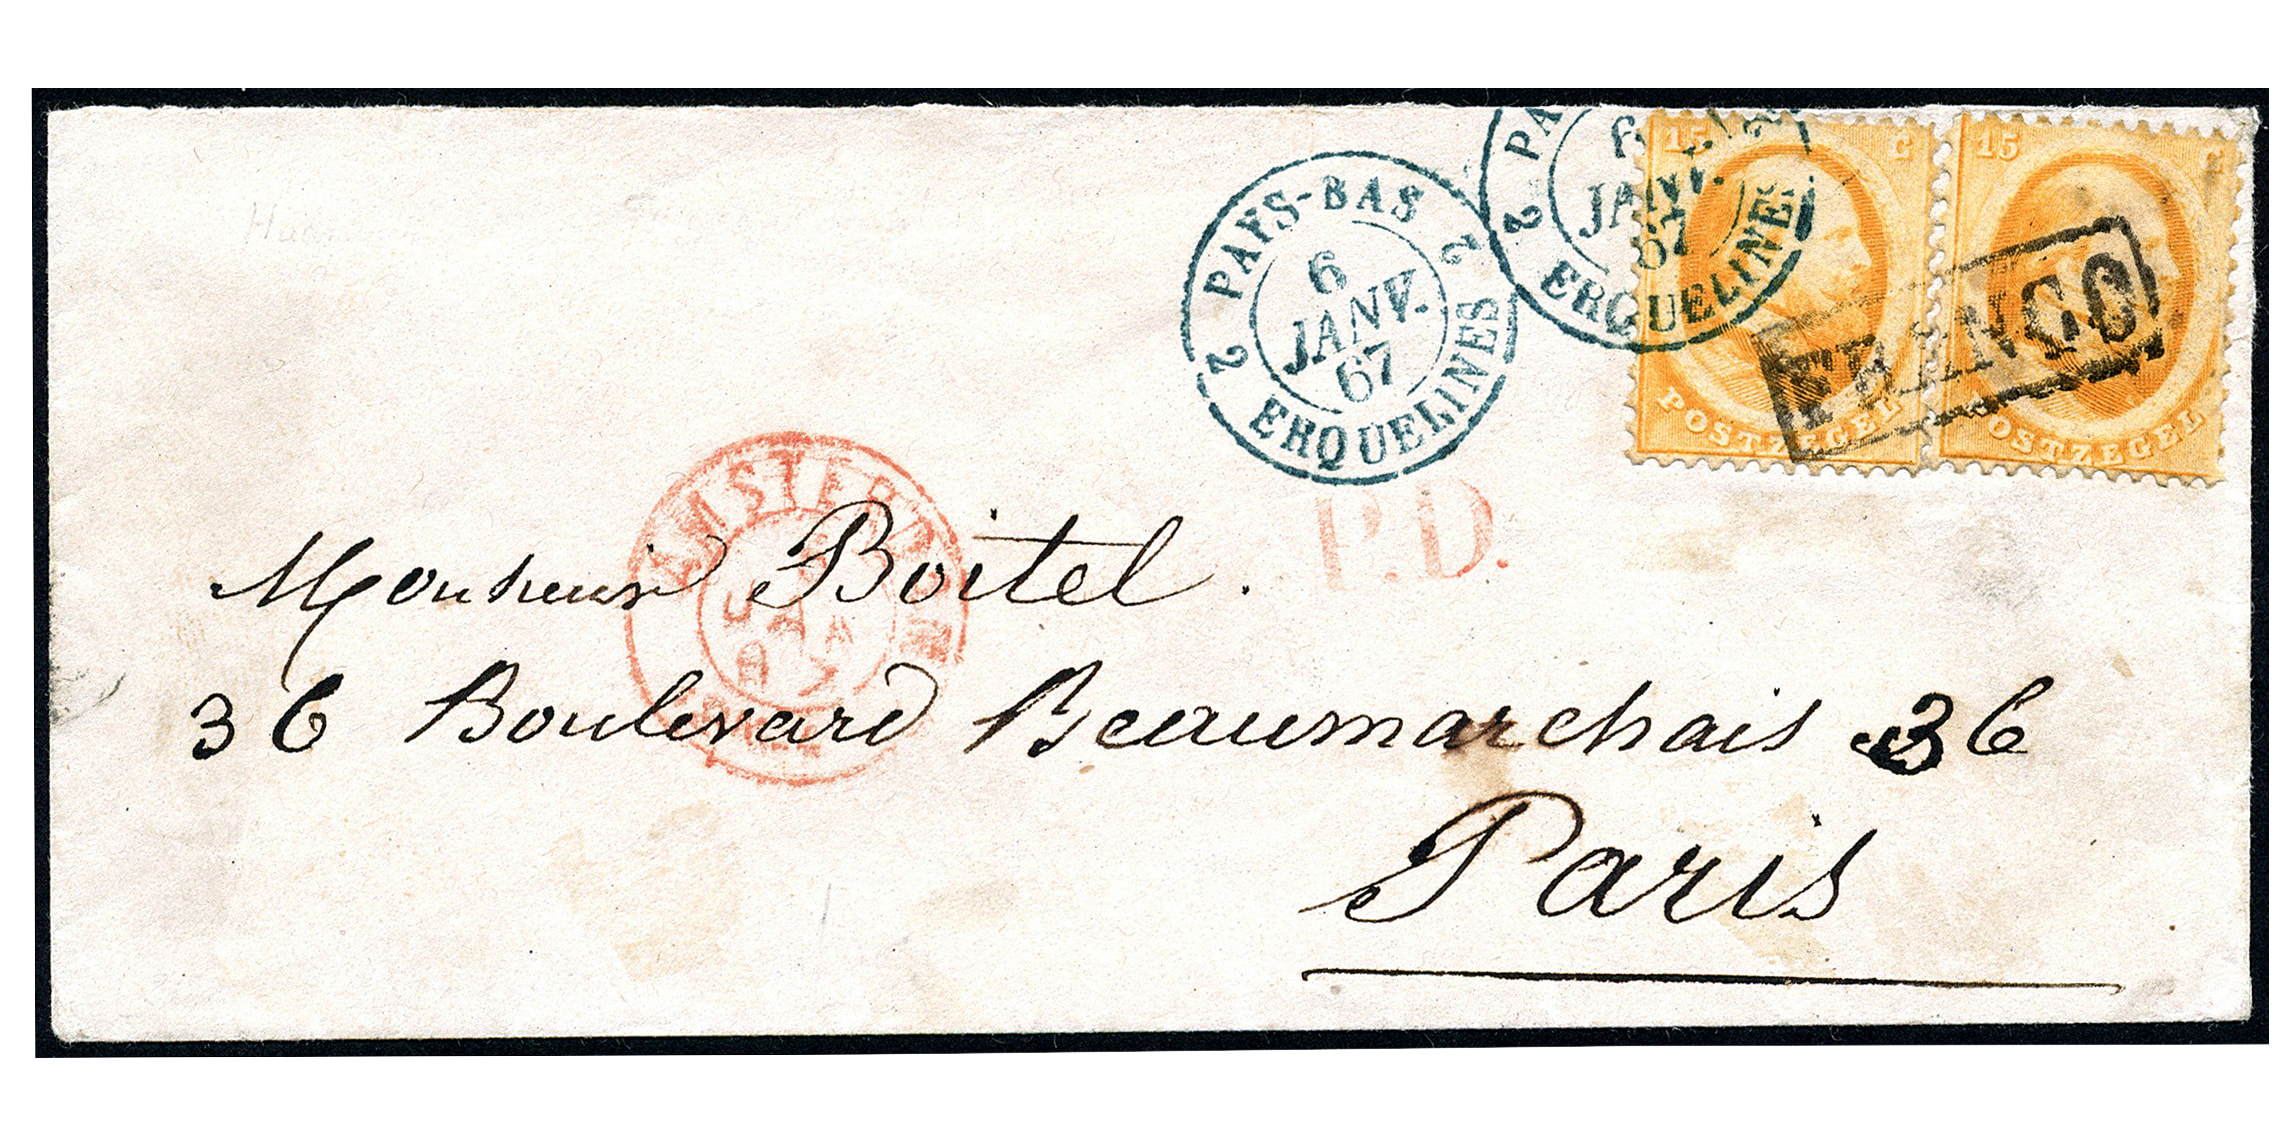 2 PAYS-BAS 2
6
JANV.
67
ERQUELINES
2 PA
6
JANV.
67
ERQUELINES
15 C
POSTZEGEL
15
POSTZEGEL
FRANCO
AMSTERDAM
P.D.
Monsieur Boitel.
36 Boulevard Beaumarchais 36
Paris